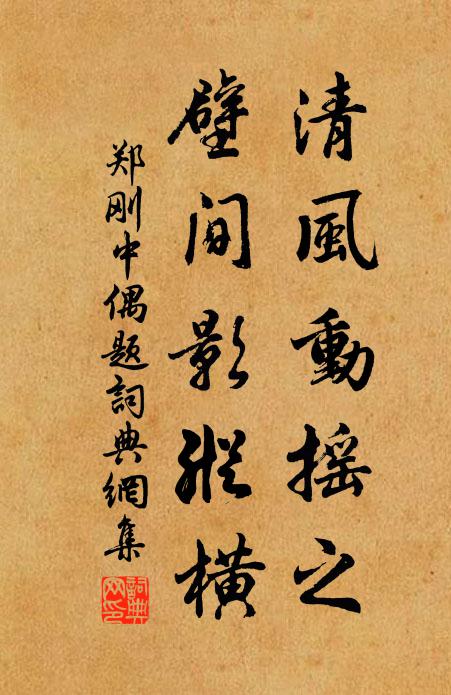 清風動摇之
壁间影縱橫
郑刚中偶题詞典網集
詞典网印